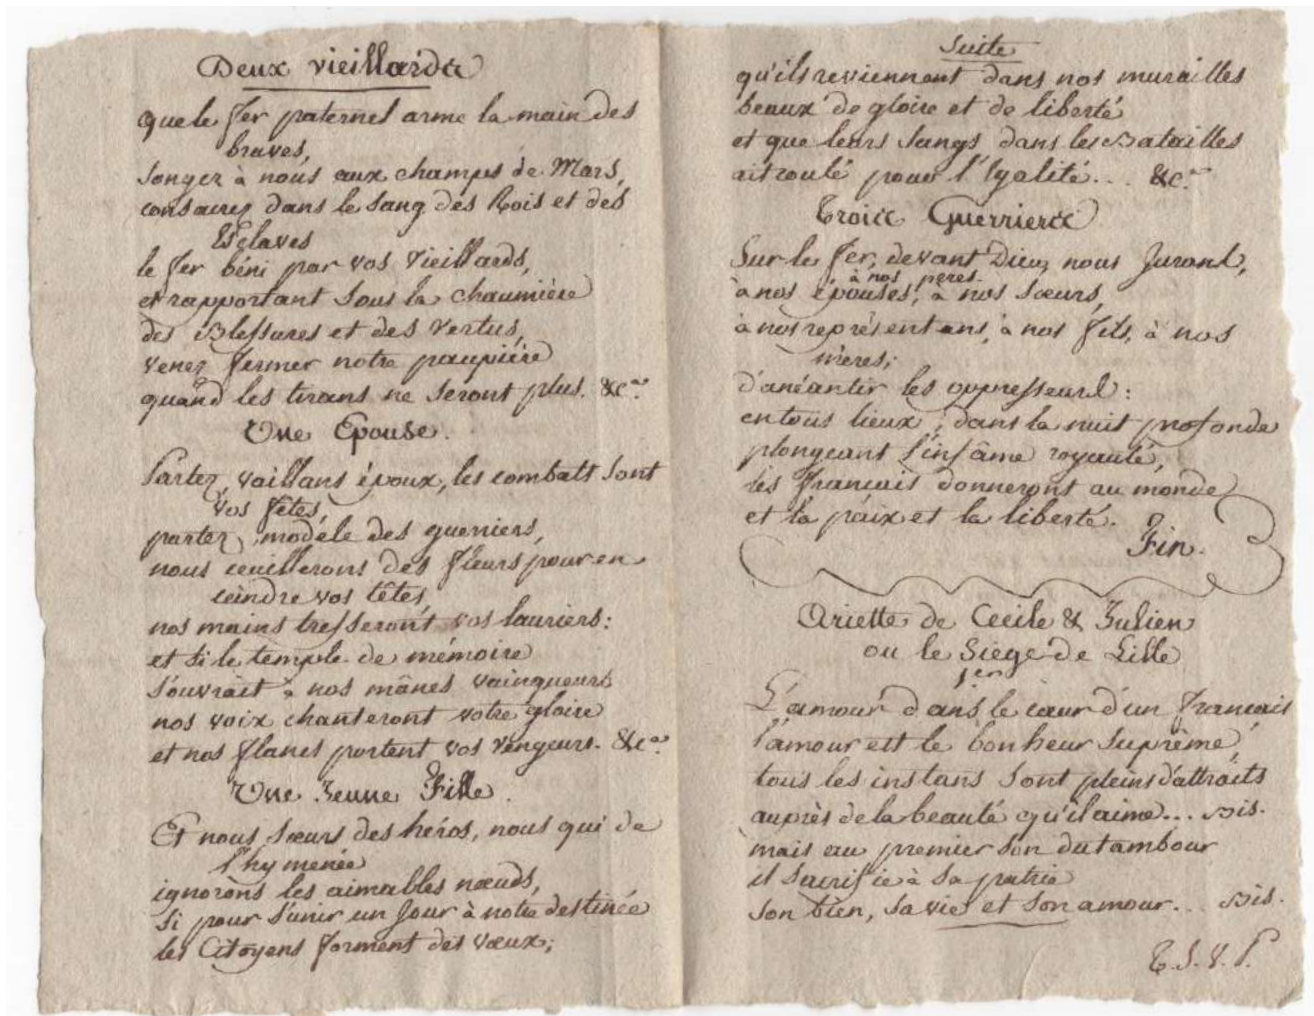 Deux vieillards
que le fer paternel arme la main des
braves,
songez à nous aux champs de Mars,
consacrez dans le sang des Rois et des
Esclaves
le fer béni par vos Vieillards,
et rapportant sous la chaumière
des Blessures et des vertus,
venez fermer notre paupière
quand les tirans ne seront plus. &c.
Une Epouse.
Partez, vaillans époux, les combats sont
vos fêtes,
partez, modéle des guerriers,
nous ceuillerons des fleurs pour en
ceindre vos têtes,
nos mains tresseront vos lauriers:
et si le temple de mémoire
s'ouvrait à nos mânes vainqueurs
nos voix chanteront votre gloire
et nos flancs portent vos vengeurs. &c.
Une Jeune Fille.
Et nous sœurs des héros, nous qui de
l'hymenée
ignorons les aimables nœuds,
si pour s'unir un jour à notre destinée
les Citoyens forment des vœux;
Suite
qu'ils reviennent dans nos murailles
beaux de gloire et de liberté
et que leurs sangs dans les Batailles
ait roulé pour l'Egalité... &c.
Trois Guerriers
Sur le fer, devant Dieu, nous Jurons,
à nos pères
à nos épouses, à nos sœurs,
à nos représentans, à nos fils, à nos
mères;
d'anéantir les oppresseurs:
en tous lieux, dans la nuit profonde
plongeant l'infâme royauté,
les français donneront au monde
et la paix et la liberté.
Fin.
Ariette de Cecile & Julien
ou le Siege de Lille
1er
L'amour dans le cœur d'un francais
l'amour est le bonheur suprème,
tous les instans sont pleins d'attraits
auprès de la beauté qu'il aime... Bis.
mais au premier son du tambour
il sacrifie à sa patrie
son bien, sa vie et son amour... Bis.
T.S.V.P.